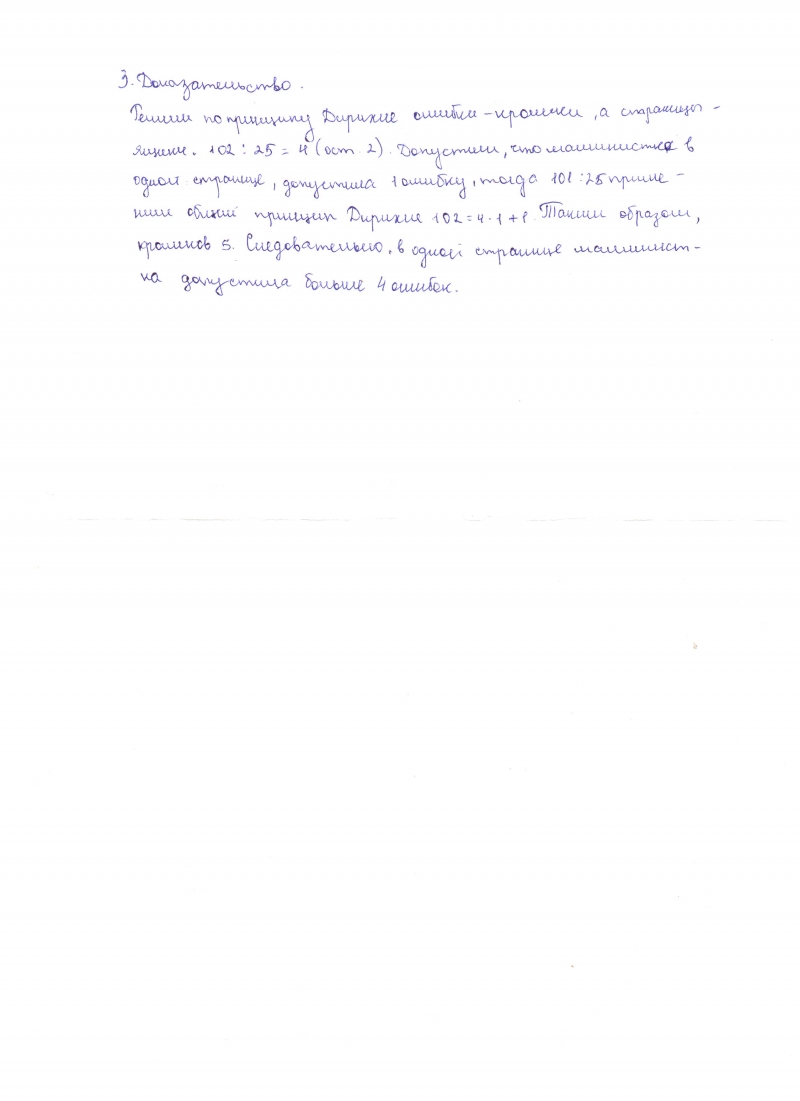 3. Доказательство.
Решим по принципу Дирихле ошибки - кролики, а страницы -
ящики. 102 : 25 = 4 (ост. 2). Допустим, что машинистка в
одной странице, допустила 1 ошибку, тогда 101 : 25 приме -
ним общий принцип Дирихле 102 = 4 · 1 + 1. Таким образом,
кроликов 5. Следовательно, в одной странице машинист-
ка допустила больше 4 ошибок.